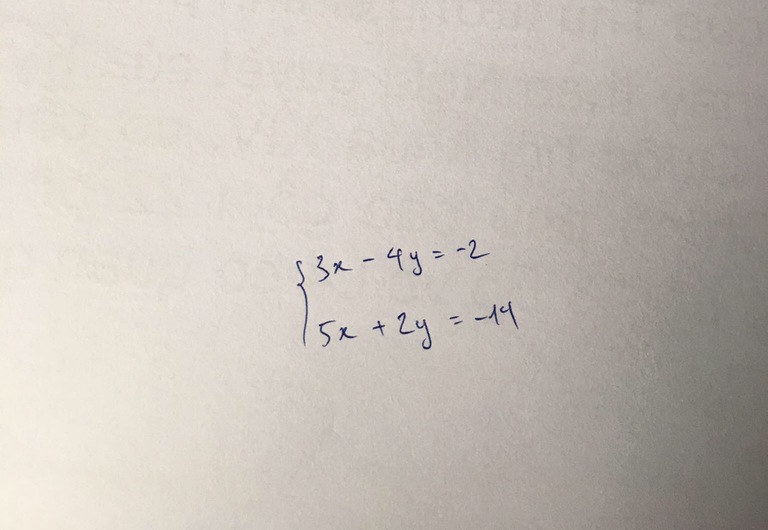 3x - 4y = -2
5x + 2y = -14